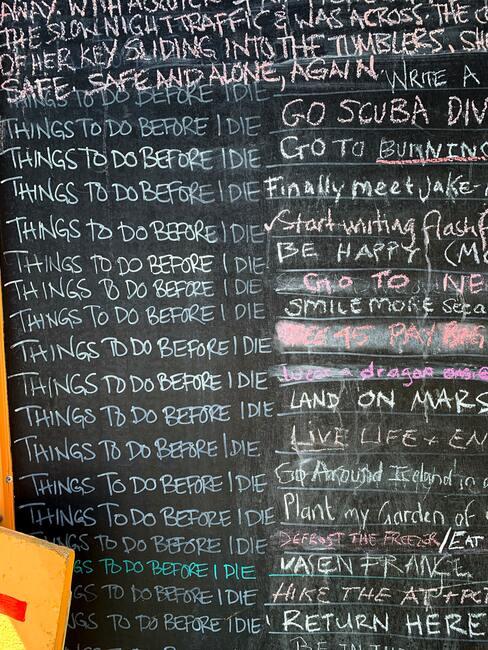 AWAY WITH
THE SLOW NIGHT TRAFFIC & WAS ACROSS THE
OF HER KEY SLIDING INTO THE TUMBLERS,
SAFE. SAFE AND ALONE, AGAIN
THINGS TO DO BEFORE I DIE WRITE A
THINGS TO DO BEFORE I DIE GO SCUBA DIV
THINGS TO DO BEFORE I DIE GO TO BURNING
THINGS TO DO BEFORE I DIE Finally meet Jake-
THINGS TO DO BEFORE I DIE ✓Start writing flash
THINGS TO DO BEFORE I DIE BE HAPPY (MO
THINGS TO DO BEFORE I DIE GO TO NE
THINGS TO DO BEFORE I DIE SMILE MORE
THINGS TO DO BEFORE I DIE 45 PAY
THINGS TO DO BEFORE I DIE a dragon
THINGS TO DO BEFORE I DIE LAND ON MARS
THINGS TO DO BEFORE I DIE LIVE LIFE + EN
THINGS TO DO BEFORE I DIE Go Around Iceland in a
THINGS TO DO BEFORE I DIE Plant my Garden of
THINGS TO DO BEFORE I DIE DEFROST THE FREEZER/EAT
GS TO DO BEFORE I DIE FRANCE
THINGS TO DO BEFORE I DIE HIKE THE
GS TO DO BEFORE I DIE RETURN HERE
BE IN